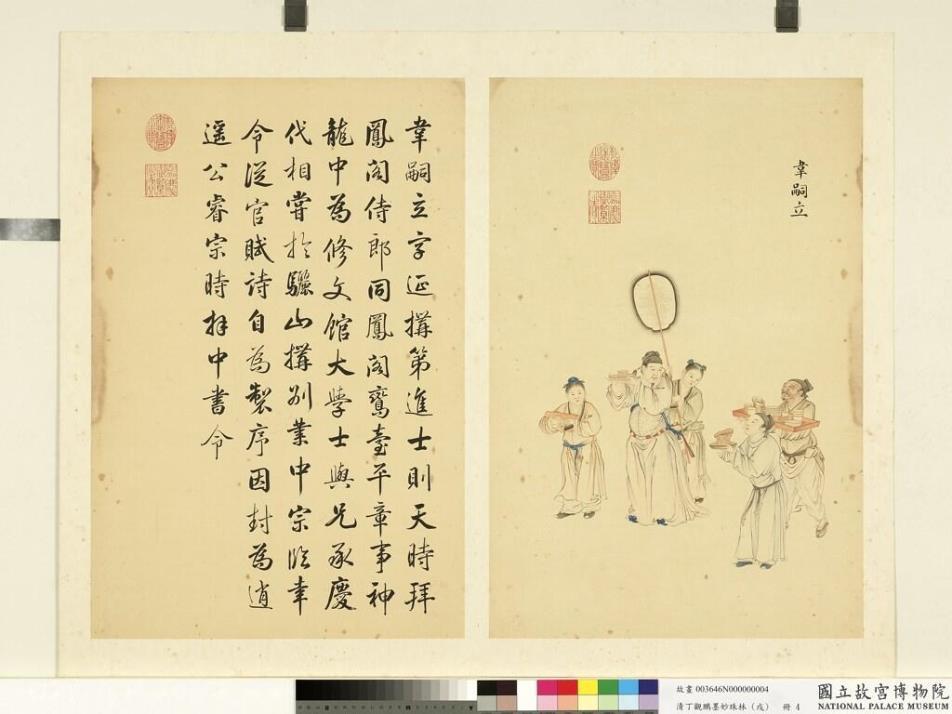 韋嗣立
韋嗣立字延搆第進士則天時拜
鳳閣侍郎同鳳閣鸞臺平章事神
龍中為修文館大學士與兄承慶
代相嘗於驪山搆別業中宗臨幸
令從官賦詩自為製序因封為逍
遥公睿宗時拜中書令
故畫 003646N000000004
清丁觀鵬墨妙珠林（戌） 冊 4
國立故宮博物院
NATIONAL PALACE MUSEUM